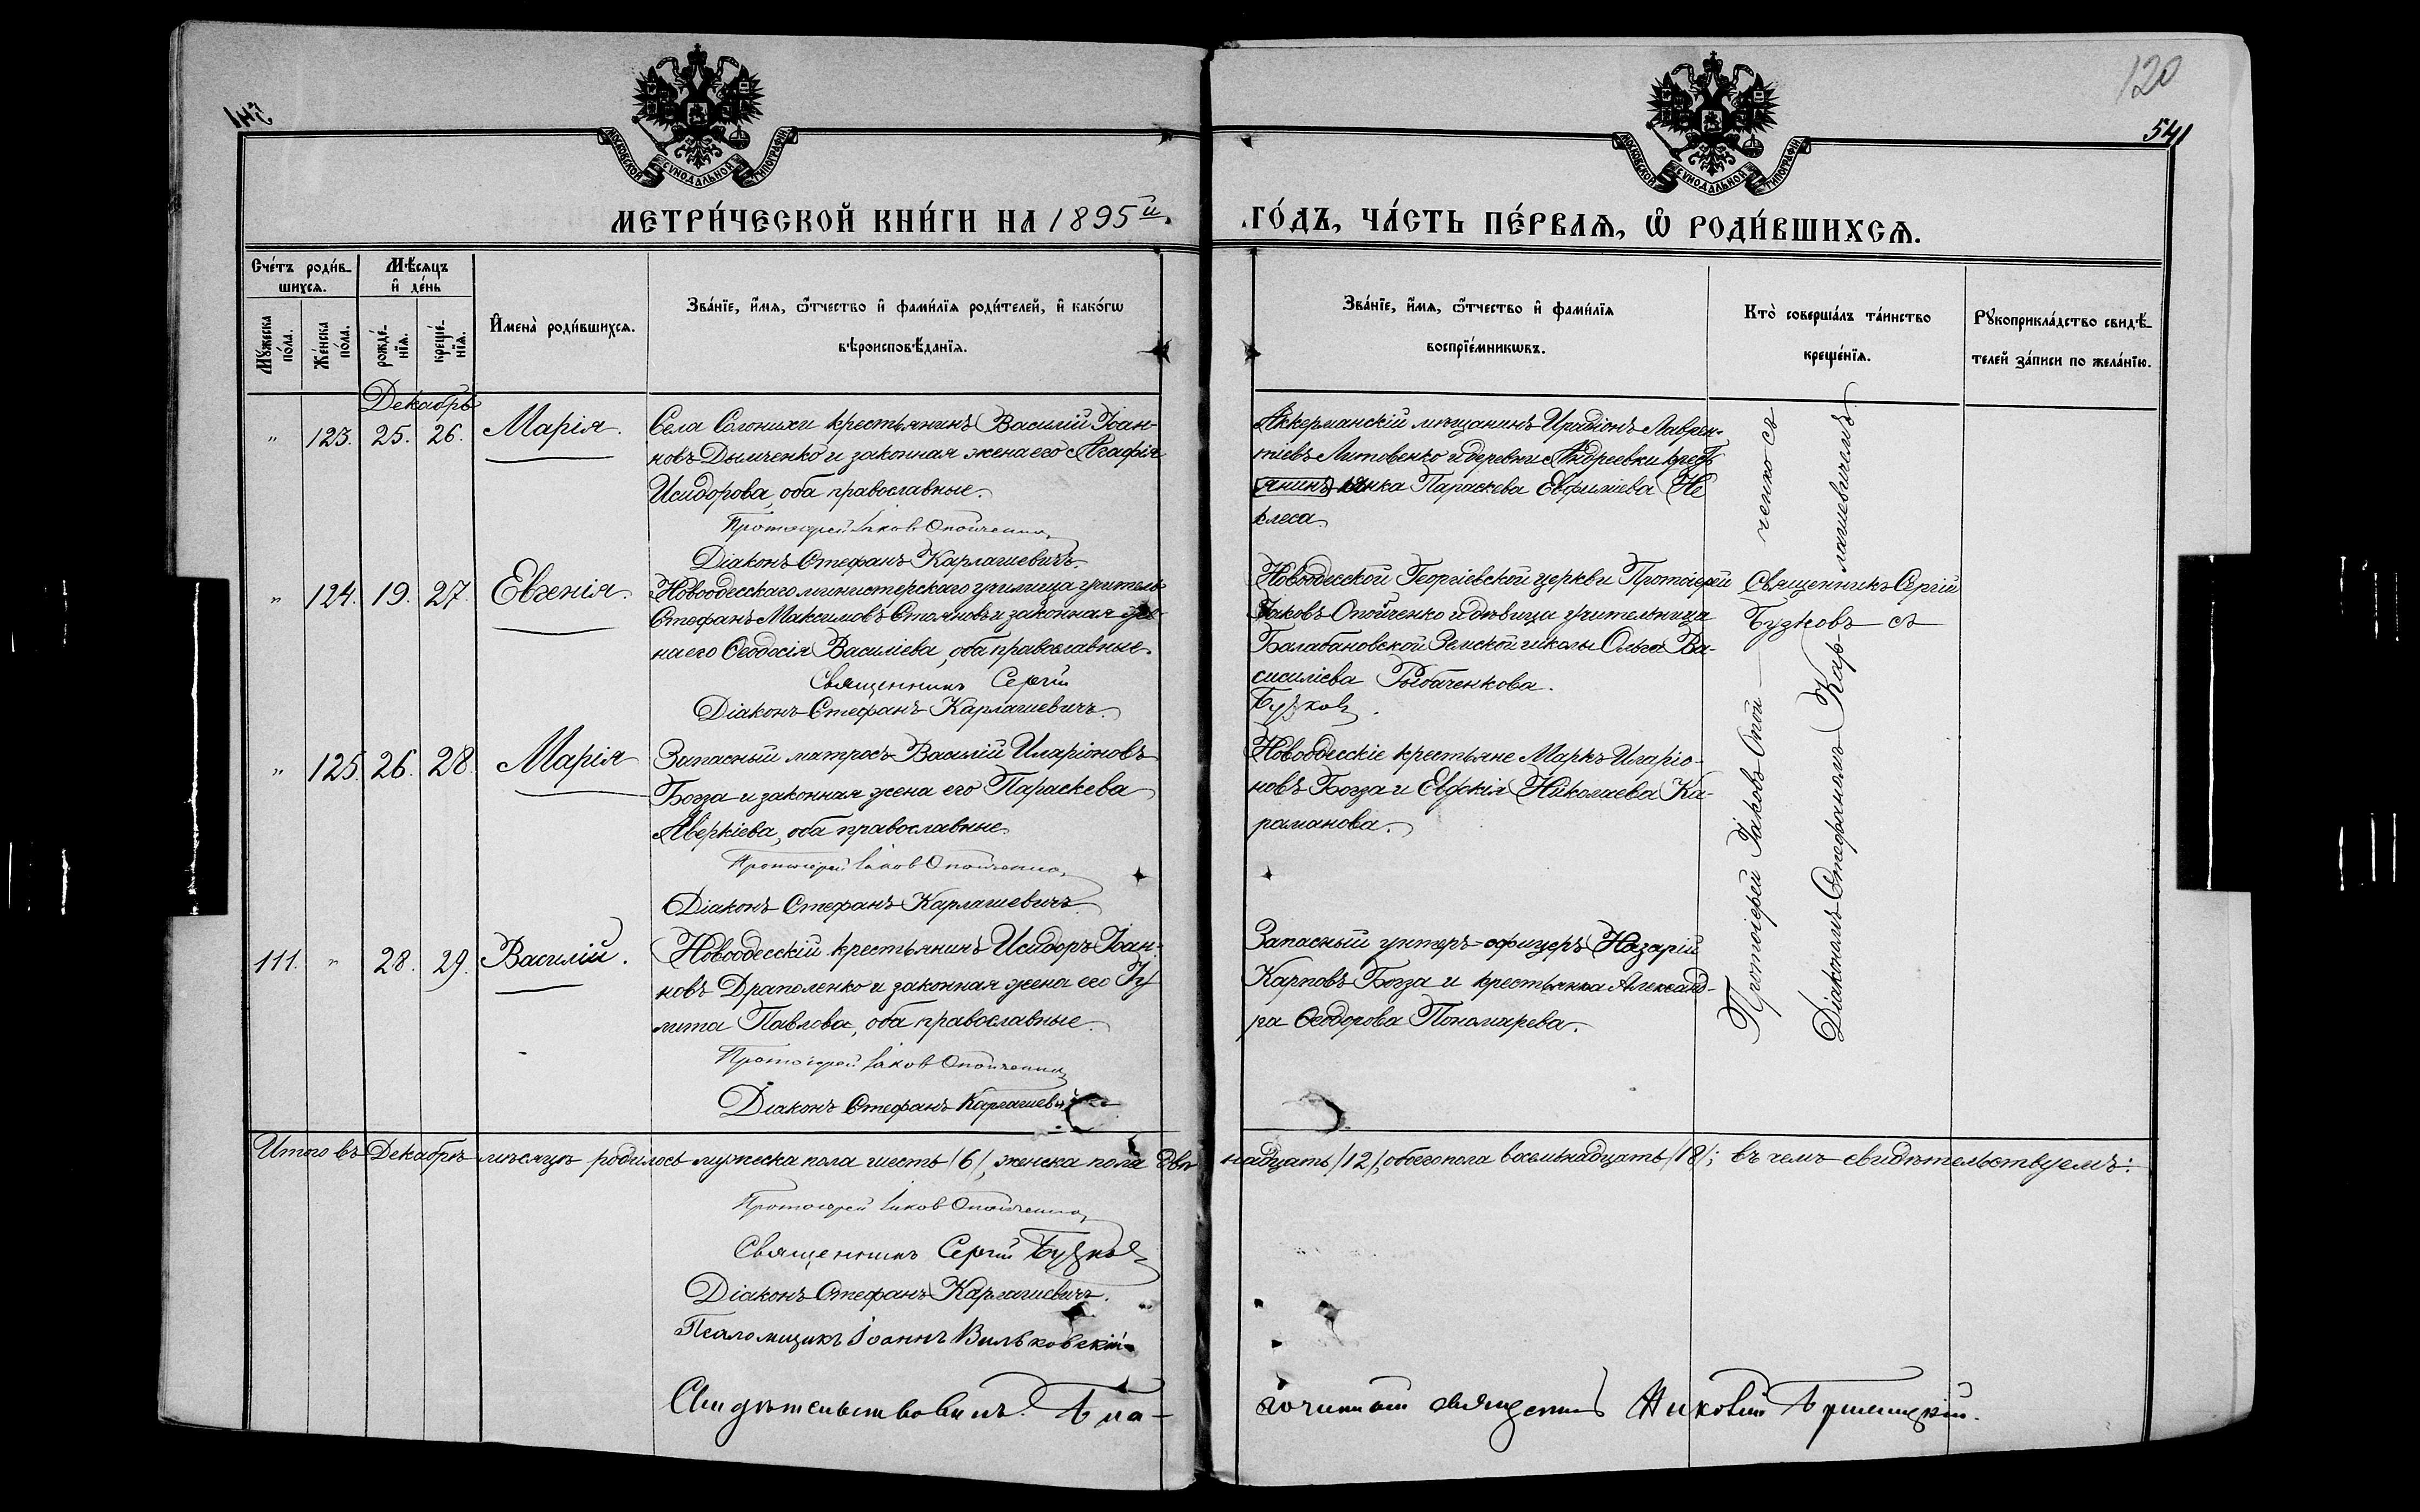 120
541
МОСКОВСКОЙ СУНОДАЛЬНОЙ ТИПОГРАФІИ
МОСКОВСКОЙ СУНОДАЛЬНОЙ ТИПОГРАФІИ
МЕТРИ́ЧЕСКОЙ КНИ́ГИ НА 1895й.
ГО́ДЪ, ЧА́СТЬ ПЕ́РВАѦ, Ѡ҆ РОДИ́ВШИХСѦ.
Сче́тъ роди́в-
шихсѧ.
Мꙋ́жеска по́ла.
Же́нска по́ла.
Мѣ́сѧцъ
и҆ де́нь
рожде́-
нїѧ.
креще́-
нїѧ.
И҆мена̀ роди́вшихсѧ.
Зва́нїе, и҆́мѧ, ѻ҆́тчество и҆ фами́лїѧ роди́телей, и҆ како́гѡ
вѣроисповѣ́данїѧ.
Зва́нїе, и҆́мѧ, ѻ҆́тчество и҆ фами́лїѧ
воспрїе́мникѡвъ.
Кто̀ соверша́лъ та́инство
креще́нїѧ.
Рꙋкоприкла́дство свидѣ́-
телей за́писи по жела́нїю.
Декабрь
" 123. 25. 26. Марія.
Села Солонихи крестьянинъ Василій Іоан-
новъ Дымченко и законная жена его Агафія
Исидорова, оба православные.
Протоіерей Іаков Опойченко
Діаконъ Стефанъ Карлашевичъ.
Аккерманскій мѣщанинъ Иродіонъ Лаврен-
тіевъ Литовенко и деревни Андреевки крест
янинъ янка Параскева Евфиміева Не
клеса.
" 124. 19. 27. Евгенія.
Новоодесскаго министерскаго училища учитель
Стефанъ Максимовъ Стояновъ и законная же-
на его Ѳеодосія Василіева, оба православные.
Священникъ Сергій
Діаконъ Стефанъ Карлашевичъ.
Новоодесской Георгіевской церкви Протоіерей
Іаковъ Опойченко и дѣвица учительница
Балабановской Земской школы Ольга Ва-
сисиліева Рыбаченкова.
Бузковъ.
Священникъ Сергій
Бузковъ съ
" 125. 26. 28. Марія
Запасный матросъ Василій Иларіоновъ
Богза и законная жена его Параскева
Аверкіева, оба православные.
Протоіерей Іаков Опойченко
Діаконъ Стефанъ Карлашевичъ.
Новоодесскіе крестьяне Маркъ Иларіо-
новъ Богза и Евдокія Николаева Ка-
раманова.
111. " 28. 29. Василій.
Новоодесскій крестьянинъ Исидоръ Іоан-
новъ Драполенко и законная жена его Іу
лита Павлова, оба православные.
Протоіерей Іаков Опойченко
Діаконъ Стефанъ Карлашевичъ
Запасный унтеръ-офицеръ Назарій
Карповъ Богза и крестьянка Александ-
ра Ѳеодорова Пономарева.
Протоіерей Іаковъ Опой-ченко съ
Діакономъ Стефаномъ Кар-лашевичемъ.
Итого въ Декабрѣ мѣсяцѣ родилось мужеска пола шесть /6/, женска пола двѣ надцать /12/, обоего пола восемьнадцать /18/; въ чемъ свидѣтельствуемъ:
Протоіерей Іаков Опойченко
Священникъ Сергій Бузковъ
Діаконъ Стефанъ Карлашевичъ.
Псаломщикъ Іоаннъ Вильковскій
Свидѣтельствовалъ. Бла-
гочинный священникъ